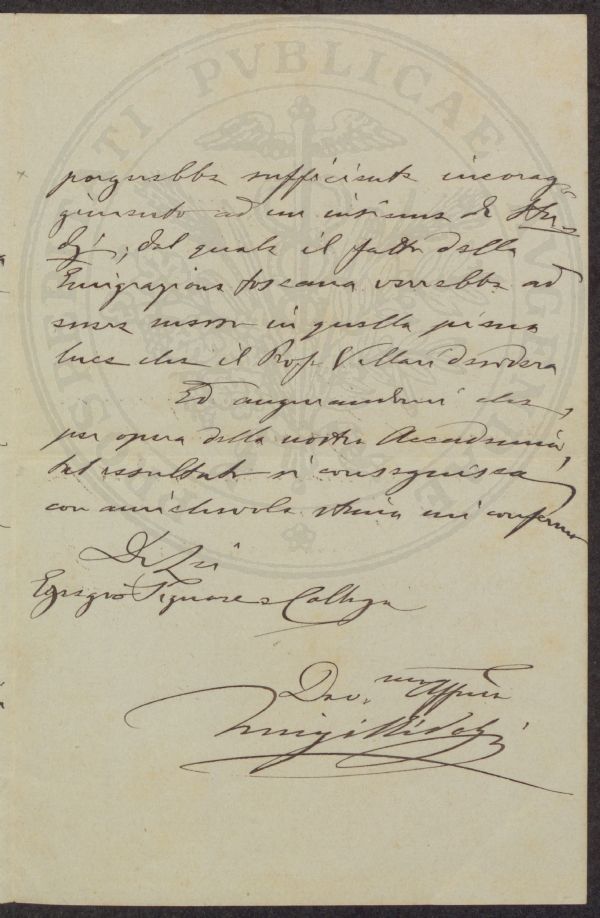 porgerebbe sufficiente incorag-
giamento ad un insieme di Stu-
dj; dal quale il fatto della
Emigrazione toscana verrebbe ad
essere messo in quella piena
luce che il Prof. Villari desidera
Ed augurandomi che,
per opera della nostra Accademia,
tal resultato si conseguisca
con amichevole stima mi confermo
Di Lei
Egregio Signore e Collega
Dev.mo Affmo
Luigi Ridolfi
PUBLICAE